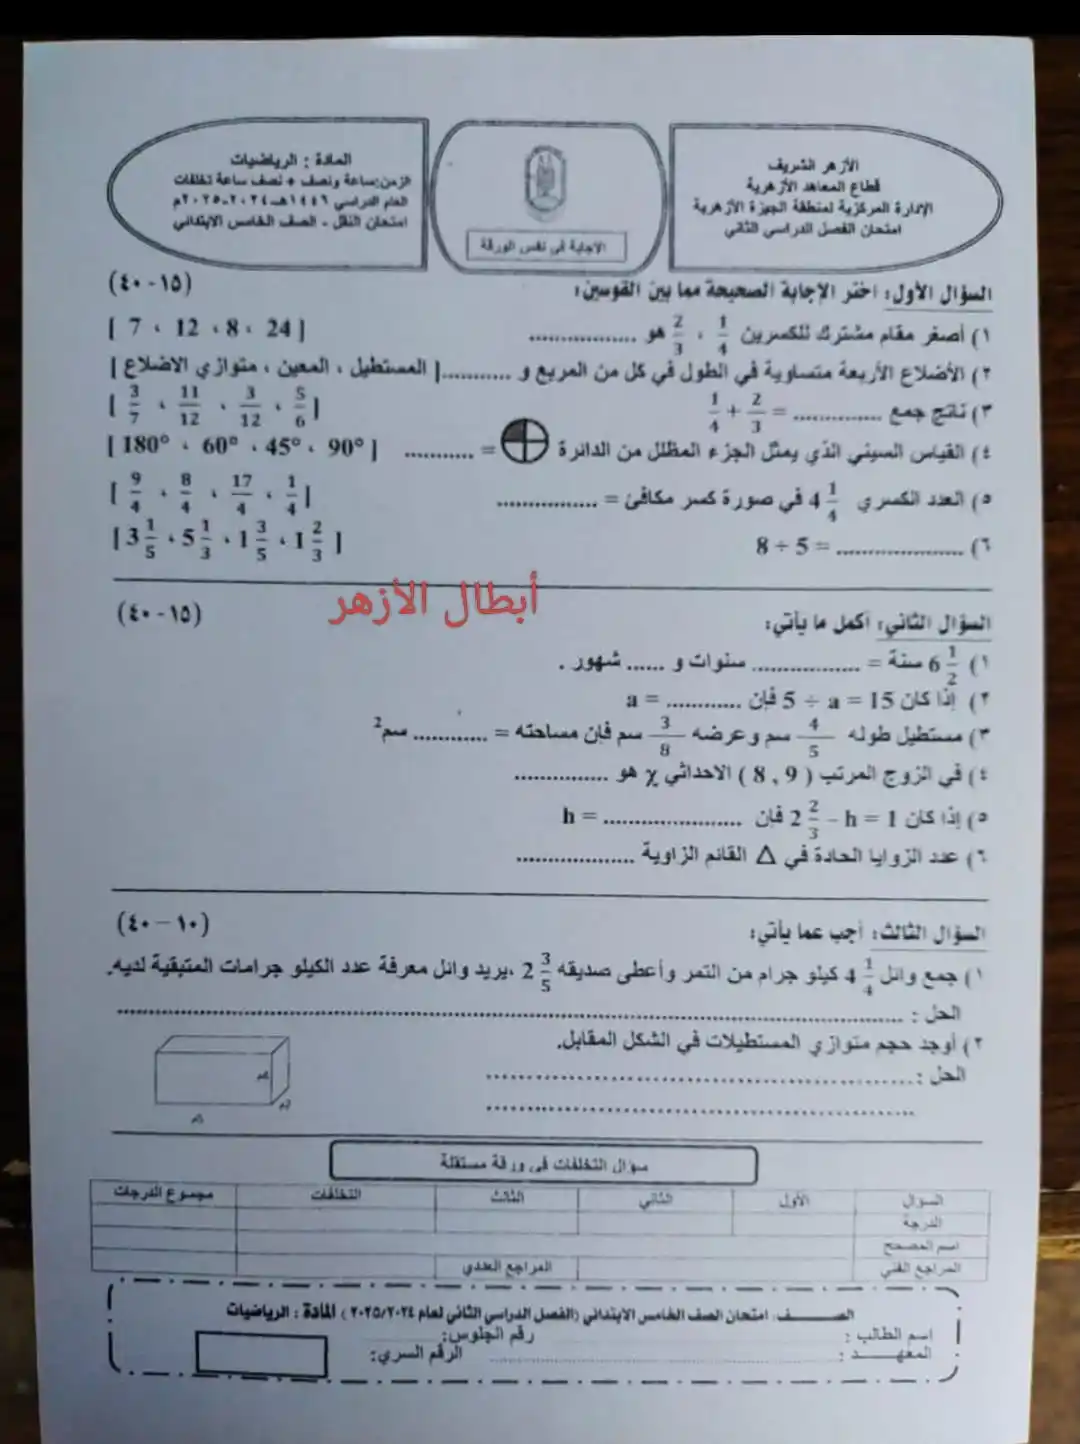 الأزهر الشريف
قطاع المعاهد الأزهرية
الإدارة المركزية لمنطقة الجيزة الأزهرية
امتحان الفصل الدراسي الثاني
الاجابة في نفس الورقة
المادة : الرياضيات
الزمن:ساعة ونصف + نصف ساعة تخلفات
العام الدراسي ١٤٤٦هـ-٢٠٢٤-٢٠٢٥م
امتحان النقل - الصف الخامس الابتدائي
السؤال الأول: اختر الإجابة الصحيحة مما بين القوسين: (١٥-٤٠)
١) أصغر مقام مشترك للكسرين 1/4 ، 2/3 هو .................. [ 7 ، 12 ، 8 ، 24 ]
٢) الأضلاع الأربعة متساوية في الطول في كل من المربع و ...........[ المستطيل ، المعين ، متوازي الاضلاع ]
٣) ناتج جمع .............. = 1/4 + 2/3 [ 3/7 ، 11/12 ، 3/12 ، 5/6 ]
٤) القياس السيني الذي يمثل الجزء المظلل من الدائرة = ........... [ 180° ، 60° ، 45° ، 90° ]
٥) العدد الكسري 4 1/4 في صورة كسر مكافئ = ................ [ 9/4 ، 8/4 ، 17/4 ، 1/4 ]
٦) 8 ÷ 5 = .................... [ 3 1/5 ، 5 1/3 ، 1 3/5 ، 1 2/3 ]
أبطال الأزهر
السؤال الثاني: أكمل ما يأتي: (١٥-٤٠)
١) 6 1/2 سنة = ................. سنوات و ...... شهور .
٢) إذا كان 5 ÷ a = 15 فإن a = ............
٣) مستطيل طوله 4/5 سم وعرضه 3/8 سم فإن مساحته = ............ سم2
٤) في الزوج المرتب ( 8 , 9 ) الاحداثي χ هو ...............
٥) إذا كان 2 2/3 - h = 1 فإن h = ......................
٦) عدد الزوايا الحادة في Δ القائم الزاوية ...................
السؤال الثالث: أجب عما يأتي: (١٠-٤٠)
١) جمع وائل 4 1/4 كيلو جرام من التمر وأعطى صديقه 2 3/5 ،يريد وائل معرفة عدد الكيلو جرامات المتبقية لديه.
الحل : ..............................
٢) أوجد حجم متوازي المستطيلات في الشكل المقابل.
الحل : ..............................
سؤال التخلفات في ورقة مستقلة
السؤال الأول الثاني الثالث التخلفات مجموع الدرجات
الدرجة
اسم المصحح
المراجع الفني المراجع العددي
الصـــــف: امتحان الصف الخامس الابتدائي (الفصل الدراسي الثاني لعام ٢٠٢٥/٢٠٢٤ ) المادة : الرياضيات
اسم الطالب : رقم الجلوس:
المعهـــــد : الرقم السري: